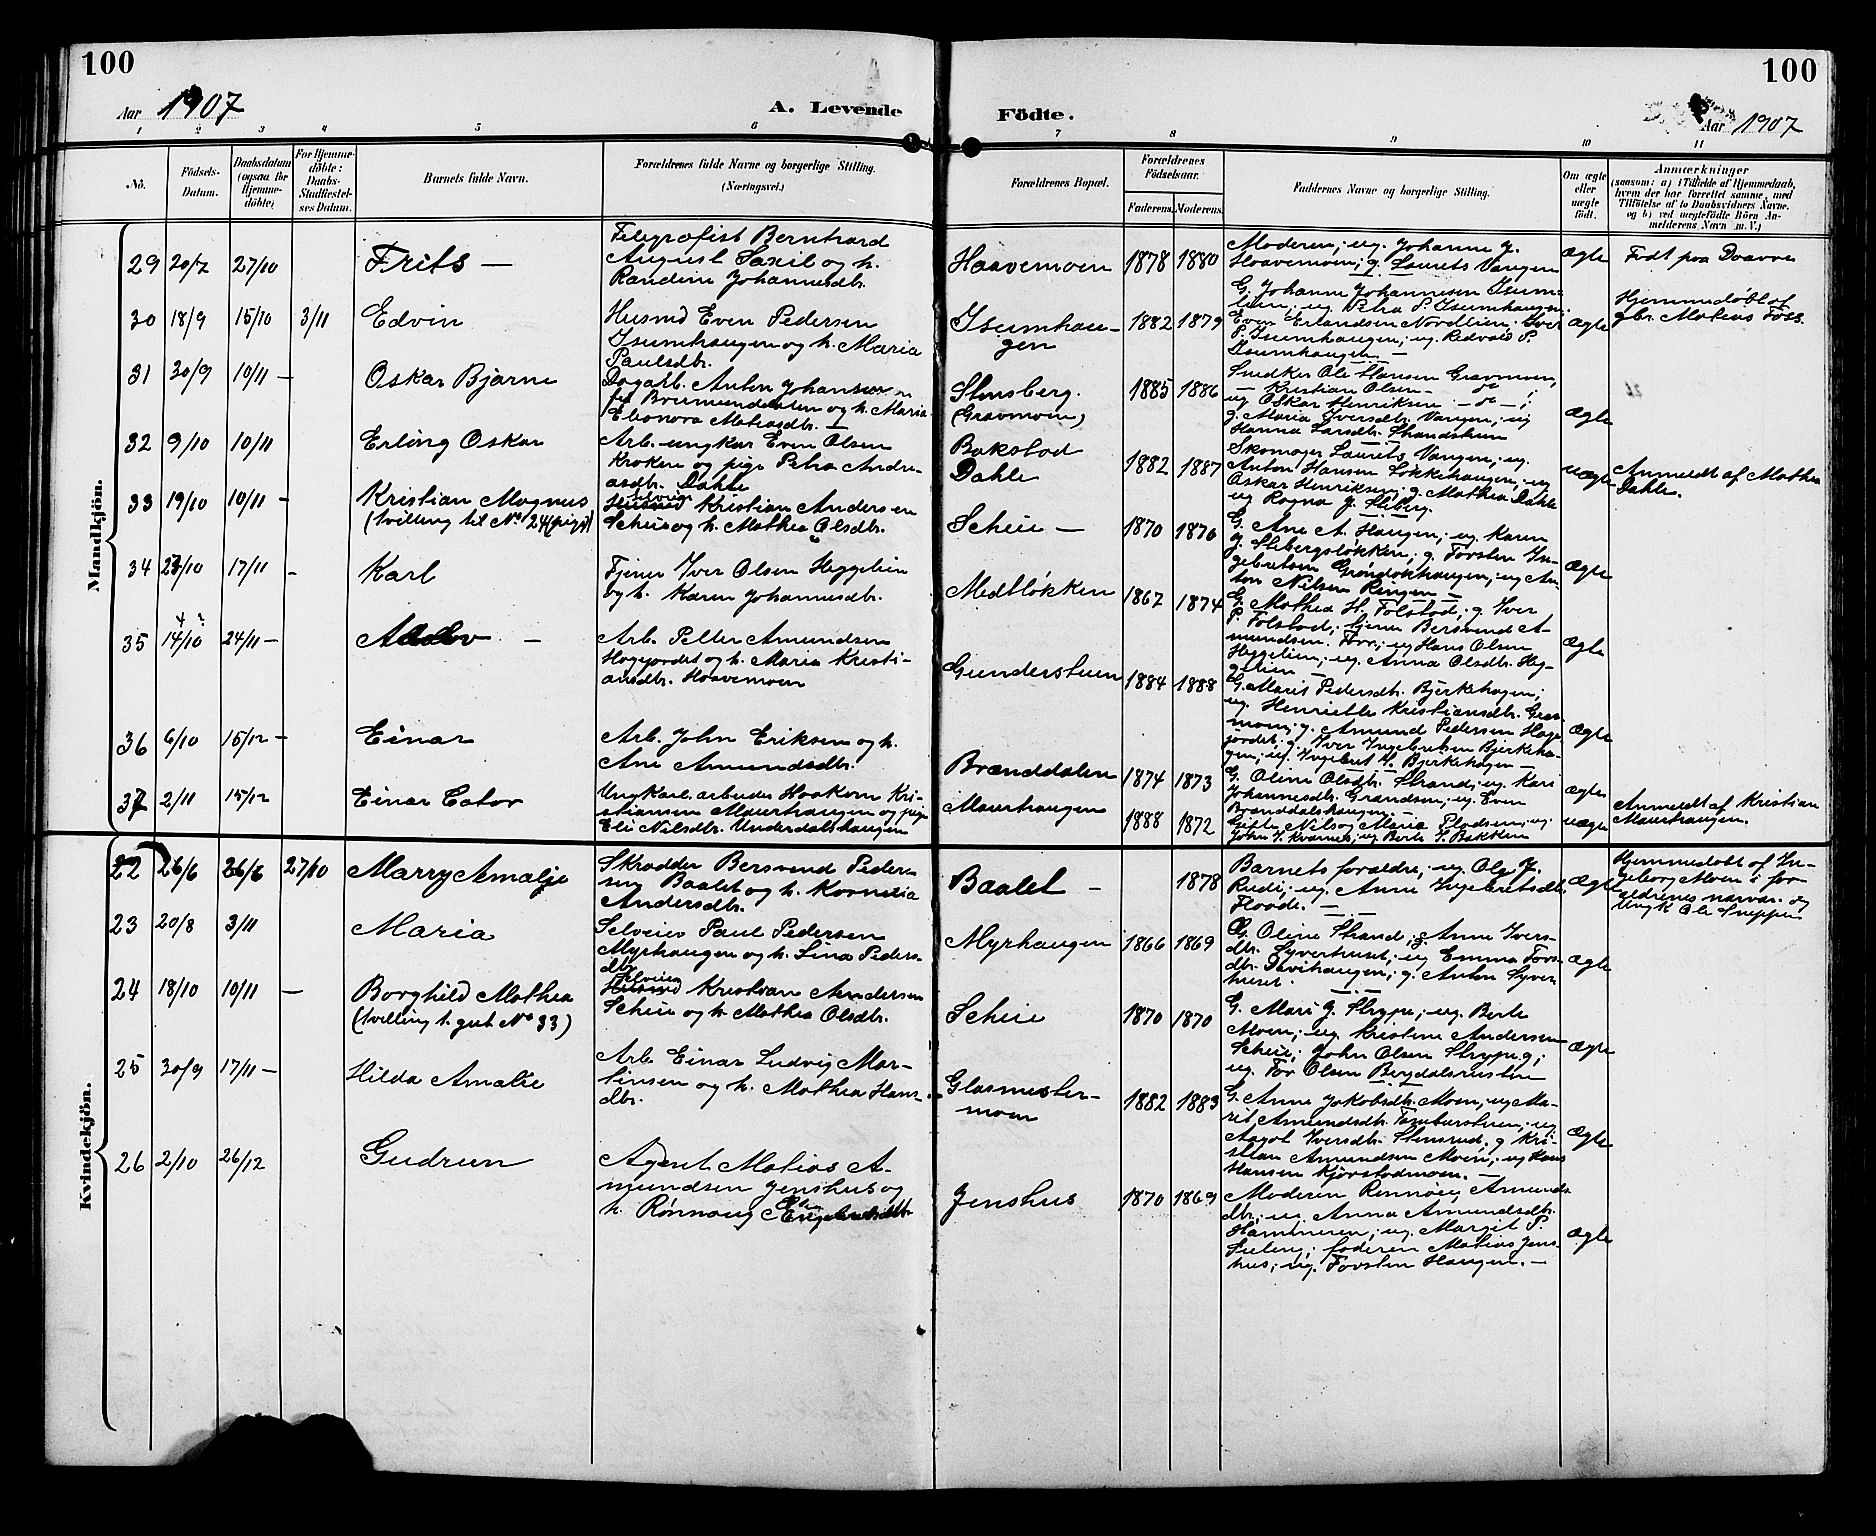 100
100
Aar 1907
A. Levende
Födte.
Aar 1907
1 2 3 4 5 6 7 8 9 10 11
Nö.
Födsels-
Datum.
Daabsdatum
(ogsaa for
Hjemme-
döbte)
For Hjemme-
döbte:
Daabs-
Stadfæstel-
ses Datum.
Barnets fulde Navn.
Forældrenes fulde Navne og borgerlige Stilling.
(Næringsvei.)
Forældrenes Bopæl.
Forældrenes
Födselsaar.
Faderens.
Moderens.
Faddernes Navne og borgerlige Stilling.
Om ægte
eller
uægte
født.
Anmærkninger
(saasom: a) i Tilfælde af Hjemmedaab,
hvem der har forrettet samme, med
Tilföielse af to Daabsvidners Navne.
og b) ved uægtefödte Börn An-
melderens Navn m. V.)
Mandkjön.
29 20/7 27/10 Frits —
Telegrafist Bernhard
August Saxil og h.
Randine Johannesdtr.
Haavemoen 1878 1880
Moderen; ug. Johanne J.
Haavemoen; g. Laurits Vangen
Ægte
Født paa Dovre
30 18/9 15/10 3/11 Edvin
Husmd Even Pedersen
Isumhaugen og h. Maria
Paulsdtr.
Isumhau-
gen
1882 1879
G. Johanne Johannesen Isum-
lien; ug. Petra P. Isumhaugen;
Even Erlandsen Nordlien; Iver
P. Isumhaugen; ug. Redvald P.
Isumhaugen —
Ægte
Hjemmedøbt af
gbr. Matias Foss.
31 30/9 10/11 — Oskar Bjarne
Dagarb. Anton Johansen
fra Brumunddalen og h. Maria
Eleonora Matiasdtr.
Stensberg.
(Gravmoen)
1885 1886
Snedker Ole Hansen Gravmoen,
— Kristian Olsen — " — ;
ug Oskar Henriksen — " — ;
g. Maria Iversdtr. Vangen; ug
Hanna Larsdtr. Strandstuen
Ægte
32 9/10 10/11 Erling Oskar
Arb. ungkar Even Olsen
Kroken og pige Petra Andre-
asdtr. Dahle
Bakstad
Dahle
1882 1887
Skomager Laurits Vangen; ug.
Anton Hansen Løkkehaugen; ug
Oskar Henriksen; g. Mathea Dahle
ug Ragna J. Sliberg.
uægte
Anmeldt af Mathea
Dahle.
33 19/10 10/11 — Kristian Magnus
(tvilling til No 24 (pige))
Husmd Selveier Kristian Andersen
Scheie og h. Mathea Olsdtr.
Scheie — 1870 1870
G. Ane A. Haugen; ug. Karen
J. Slibergsløkken; g. Torsten In-
gebretsen Grøndokhaugen; ug An-
ton Nilsen Ringen —
Ægte
34 23/10 17/11 — Karl
Tjener Iver Olsen Heggelien
og h. Karen Johannesdtr.
Medtløkken 1867 1874
G. Mathea H. Tolstad; g. Iver
P. Tolstad; tjener Bersvend A-
mundsen Torr; ug Hans Olsen
Heggelien; ug. Anna Olsdtr. Heg-
gelien —
Ægte
35 14/10 24/11 —
Arb. Petter Amundsen
Hagejordet og h. Maria Kristi-
ansdtr. Haavemoen
Gunderstuen 1884 1888
G. Marit Pedersdtr. Bjerkehagen;
ug. Henriette Kristiansdtr. Grav-
moen; g. Amund Pedersen Hage-
jordet; g. Iver Ingebretsen Bjerkeha-
gen; ug. Ingebret I. Bjerkehagen —
Ægte
36 6/10 15/12 — Einar
Arb. John Eriksen og h.
Ane Amundsdtr.
Brænddalen 1874 1873
G. Oline Olsdtr. Strand; ug. Kari
Johannesdtr. Grandsen; ug. Even
Brænddalshaugen —
Ægte
37 2/11 15/12 Einar Eator
Ungkarl. arbeider Haakon Kri-
stiansen Maurhaugen og pige
Eli Nilsdtr. Underdalshaugen
Maurhaugen 1888 1872
Gifte Nils og Maria Pladsen; ug.
John S. Kvarnes; ug Berte S. Bakken
uægte
Anmeldt af Kristian
Maurhaugen.
Kvindekjön.
22 26/6 26/6 27/10 Marry Amalje
Skrædder Bersvend Peder-
sen Baalet og h. Kornelia
Andersdtr.
Baalet — 1878
Barnets forældre; ug. Ole J.
Rudi; ug. Anne Ingebretsdtr.
Flaade. —
Ægte
Hjemmedøbt af In-
geborg Moen i for-
ældrenes nærvær. og
Ungk Ole Sneppen
23 20/8 3/11 Maria
Selveier Paul Pedersen
Myrhaugen og h. Lina Peders-
dtr.
Myrhaugen 1866 1869
G. Oline Strand; g. Anne Ivers-
dtr. Syverhuset; ug Emma Tors-
dtr. Davihaugen; g. Anton Syver-
huset.
Ægte
24 18/10 10/11 — Borghild Mathea
(tvilling t. gut No 33)
Husmd Selveier Kristian Andersen
Scheie og h. Mathea Olsdtr.
Scheie 1870 1870
G. Mari J. Strype; ug. Berte
Moen; ug. Kristine Andersen
Scheie; John Olsen Stryp g;
ug. Tor Olsen Bergdalsrusten
Ægte
25 30/9 17/11 — Hilda Amalie
Arb. Einar Ludvig Mar-
tinsen og h. Mathea Hans-
dtr.
Glasmester-
moen
1882 1883
G. Anne Jakobsdtr. Moen; ug Ma-
rit Amundsdtr. Tamburstuen; ug
Aagot Iversdtr. Stensrud; g. Kri-
stian Amundsen Moen; ug Hans
Hansen Kjørstadmoen.
Ægte
26 2/10 26/12 Gudrun
Agent Matias A-
mundsen Jenshus og
h. Rønnaug
Jenshus 1870 1869
Moderen Rønnøy Amunds-
dtr.; ug. Anna Amundsdtr.
Hammeren; ug. Margit P.
Sieling; faderen Matias Jens-
hus; ug. Torsten Haugen. —
Ægte